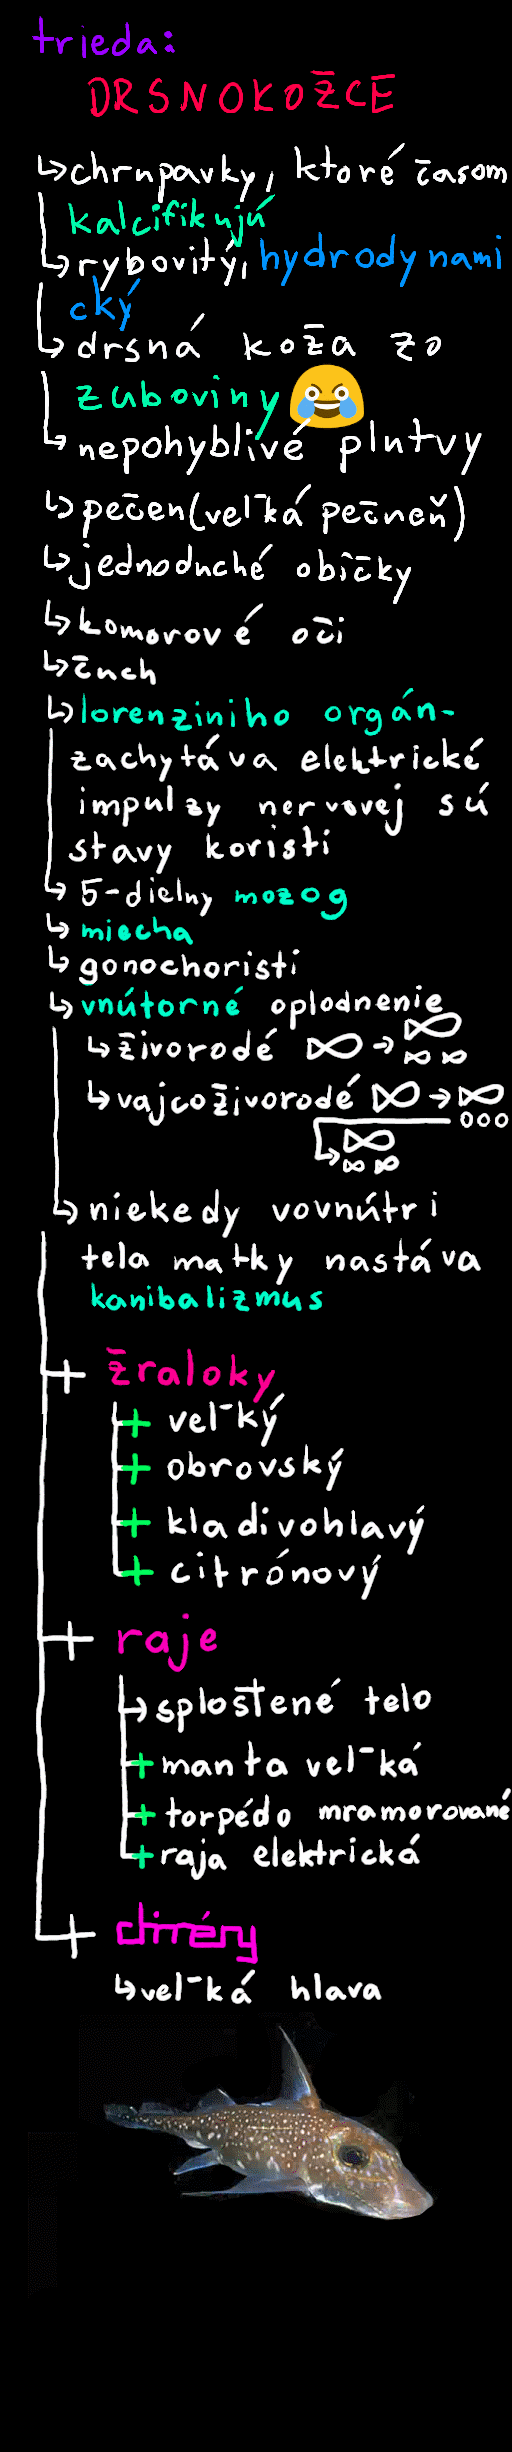 trieda:
DRSNOKOŽCE
↳chrupavky, ktoré časom
kalcifikujú
↳rybovitý, hydrodynami
cký
↳drsná koža zo
zuboviny
↳nepohyblivé plutvy
↳pečen(veľká pečneň)
↳jednoduché običky
↳komorové oči
↳čuch
↳lorenziniho orgán-
zachytáva elektrické
impulzy nervovej sú
stavy koristi
↳5-dielny mozog
↳miecha
↳gonochoristi
↳vnútorné oplodnenie
↳živorodé
↳vajcoživorodé
↳niekedy vovnútri
tela matky nastáva
kanibalizmus
+ žraloky
+ veľký
+ obrovský
+ kladivohlavý
+ citrónový
+ raje
↳sploštené telo
+ manta veľká
+ torpédo mramorované
+ raja elektrická
+ chiméry
↳veľká hlava